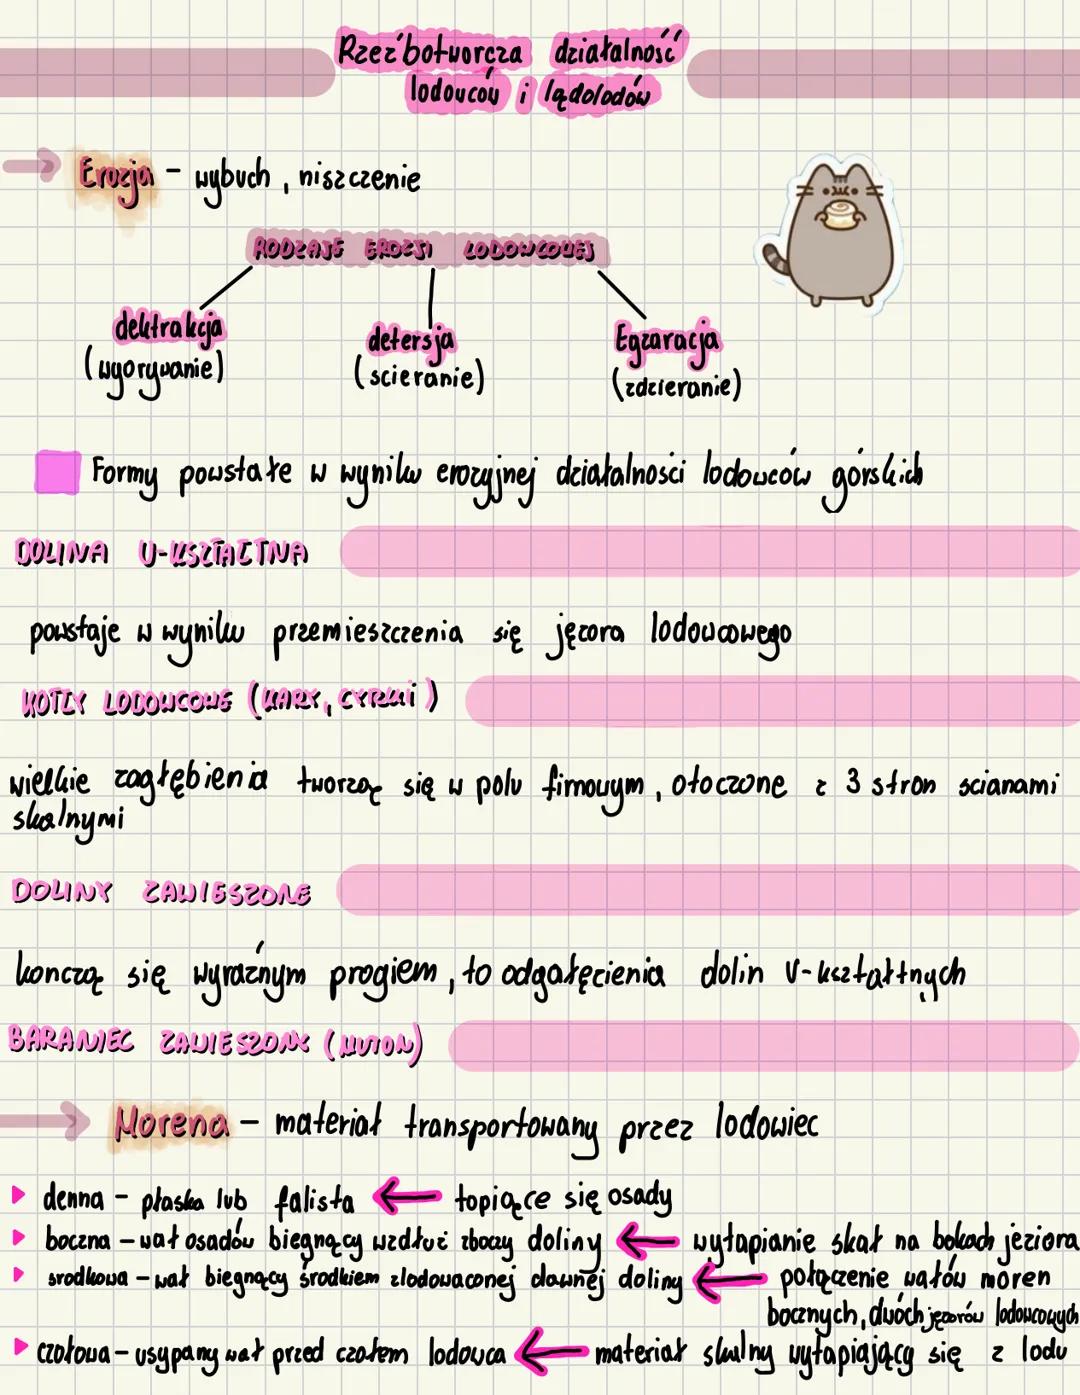 Rzeźbotworcza działalność
lodowców i lądolodów
Erozja - wybuch, niszczenie
RODZAJE EROZJI LODOWCOWEJ
dektrakcja
(wyorywanie)
detersja
(scieranie)
Egzaracja
(zdzieranie)
Formy powstałe w wyniku erozyjnej działalności lodowców górskich
DOLINA U-KSZTAŁTNA
powstaje w wyniku przemieszczenia się jęzora lodowcowego
KOTŁY LODOWCOWE (KARY, CYRKI)
wielkie zagłębienia tworzą się w polu firnowym, otoczone z 3 stron scianami
skalnymi
DOLINY ZAWIESZONE
konczą się wyraźnym progiem, to odgałęzienia dolin V-kształtnych
BARANIEC ZAWIESZONY (MUTON)
Morena - materiał transportowany przez lodowiec
denna - płaska lub falista ← topiące się osady
boczna - wał osadów biegnący wzdłuż zboczy doliny ← wytapianie skał na bokach jeziora
srodkowa - wał biegnący środkiem zlodowaconej dawnej doliny ← połączenie wałów moren
bocznych, dwóch jęzorów lodowcowych
czołowa - usypany wał przed czołem lodowca ← materiał skalny wytapiający się z lodu